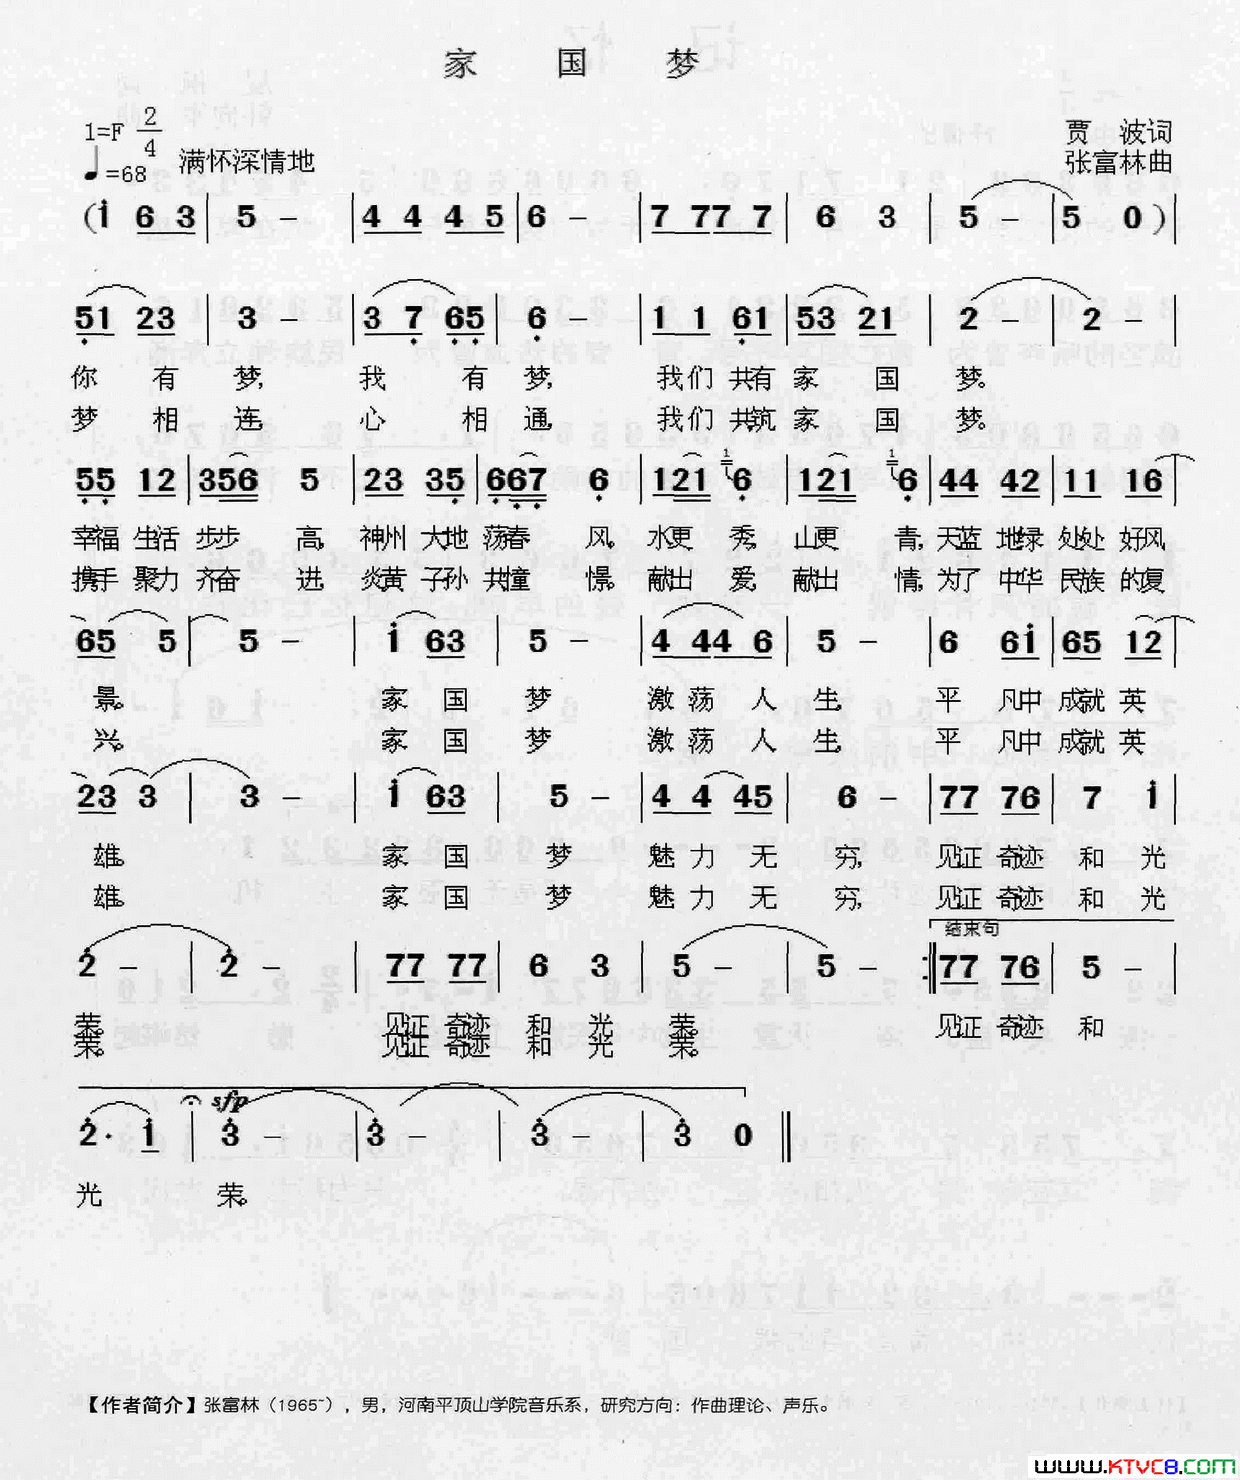 家 国 梦
1=F 2/4
贾 波词
♩=68 满怀深情地
张富林曲
(i 6 3 | 5 – | 4 4 4 5 | 6 – | 7 77 7 | 6 3 | 5 – | 5 0 ) |
51 23 | 3 – | 3 7 65 | 6 – | 1 1 61 | 53 21 | 2 – | 2 – |
你 有 梦, 我 有 梦, 我们 共有 家 国 梦。
梦 相 连, 心 相 通, 我们 共筑 家 国 梦。
55 12 | 356 5 | 23 35 | 667 6 | 121 1 6 | 121 1 6 | 44 42 | 11 16 |
幸福 生活 步步 高, 神州 大地 荡春 风, 水更 秀, 山更 青, 天蓝 地绿 处处 好风
携手 聚力 齐奋 进, 炎黄 子孙 共憧 憬, 献出 爱, 献出 情, 为了 中华 民族 的复
65 5 | 5 – | i 63 | 5 – | 4 44 6 | 5 – | 6 6i | 65 12 |
景。 家 国 梦 激 荡 人 生, 平 凡中 成就 英
兴。 家 国 梦 激 荡 人 生, 平 凡中 成就 英
23 3 | 3 – | i 63 | 5 – | 4 4 45 | 6 – | 77 76 | 7 i |
雄。 家 国 梦 魅 力 无 穷, 见证 奇迹 和 光
雄。 家 国 梦 魅 力 无 穷, 见证 奇迹 和 光
结束句
2 – | 2 – | 77 77 | 6 3 | 5 – | 5 – :‖ 77 76 | 5 – |
荣。 见证 奇迹 和 光 荣。 见证 奇迹 和
荣。 见证 奇迹 和 光 荣。
sfp
2· i | 3 – | 3 – | 3 – | 3 0 ‖
光 荣。
【作者简介】张富林（1965~），男，河南平顶山学院音乐系，研究方向：作曲理论、声乐。
www.KTVC8.com